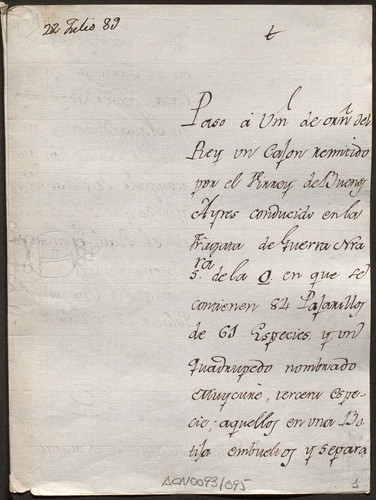 22 Julio 89
Paso á Vm.d de orn. del
Rey un Cajon remitido
por el Virrey de Buens
Ayres conducido en la
Fragata de Guerra Nra
Sra. de la O. en que se
contienen 84 Pajarillos
de 61 Especies, y un
quadrupedo nombrado
tercera Espe-
cie; aquellos en una Bo-
tija embueltos y separa
ACN0093/095
1